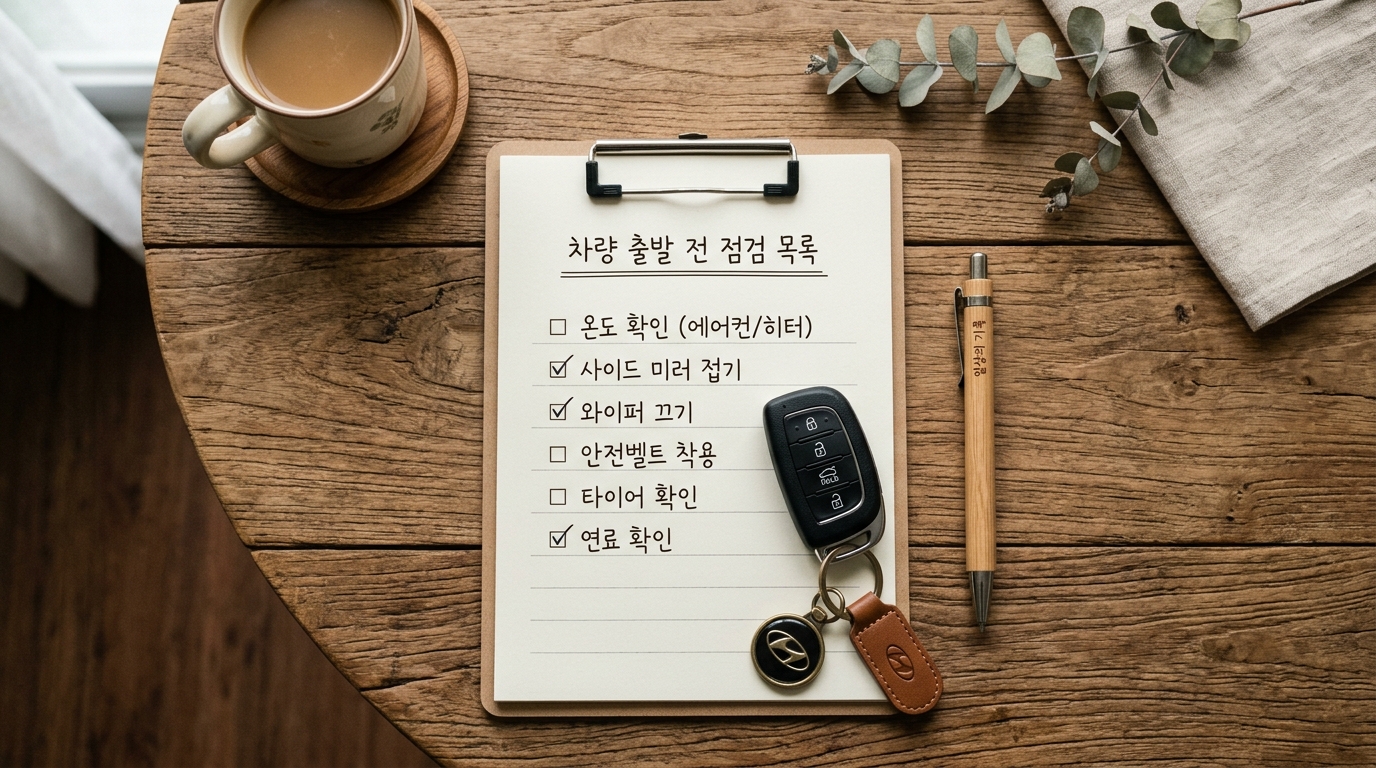 차량 출발 전 점검 목록
☐ 온도 확인 (에어컨/히터)
☑ 사이드 미러 접기
☑ 와이퍼 끄기
☐ 안전벨트 착용
☐ 타이어 확인
☑ 연료 확인
일상의 기록